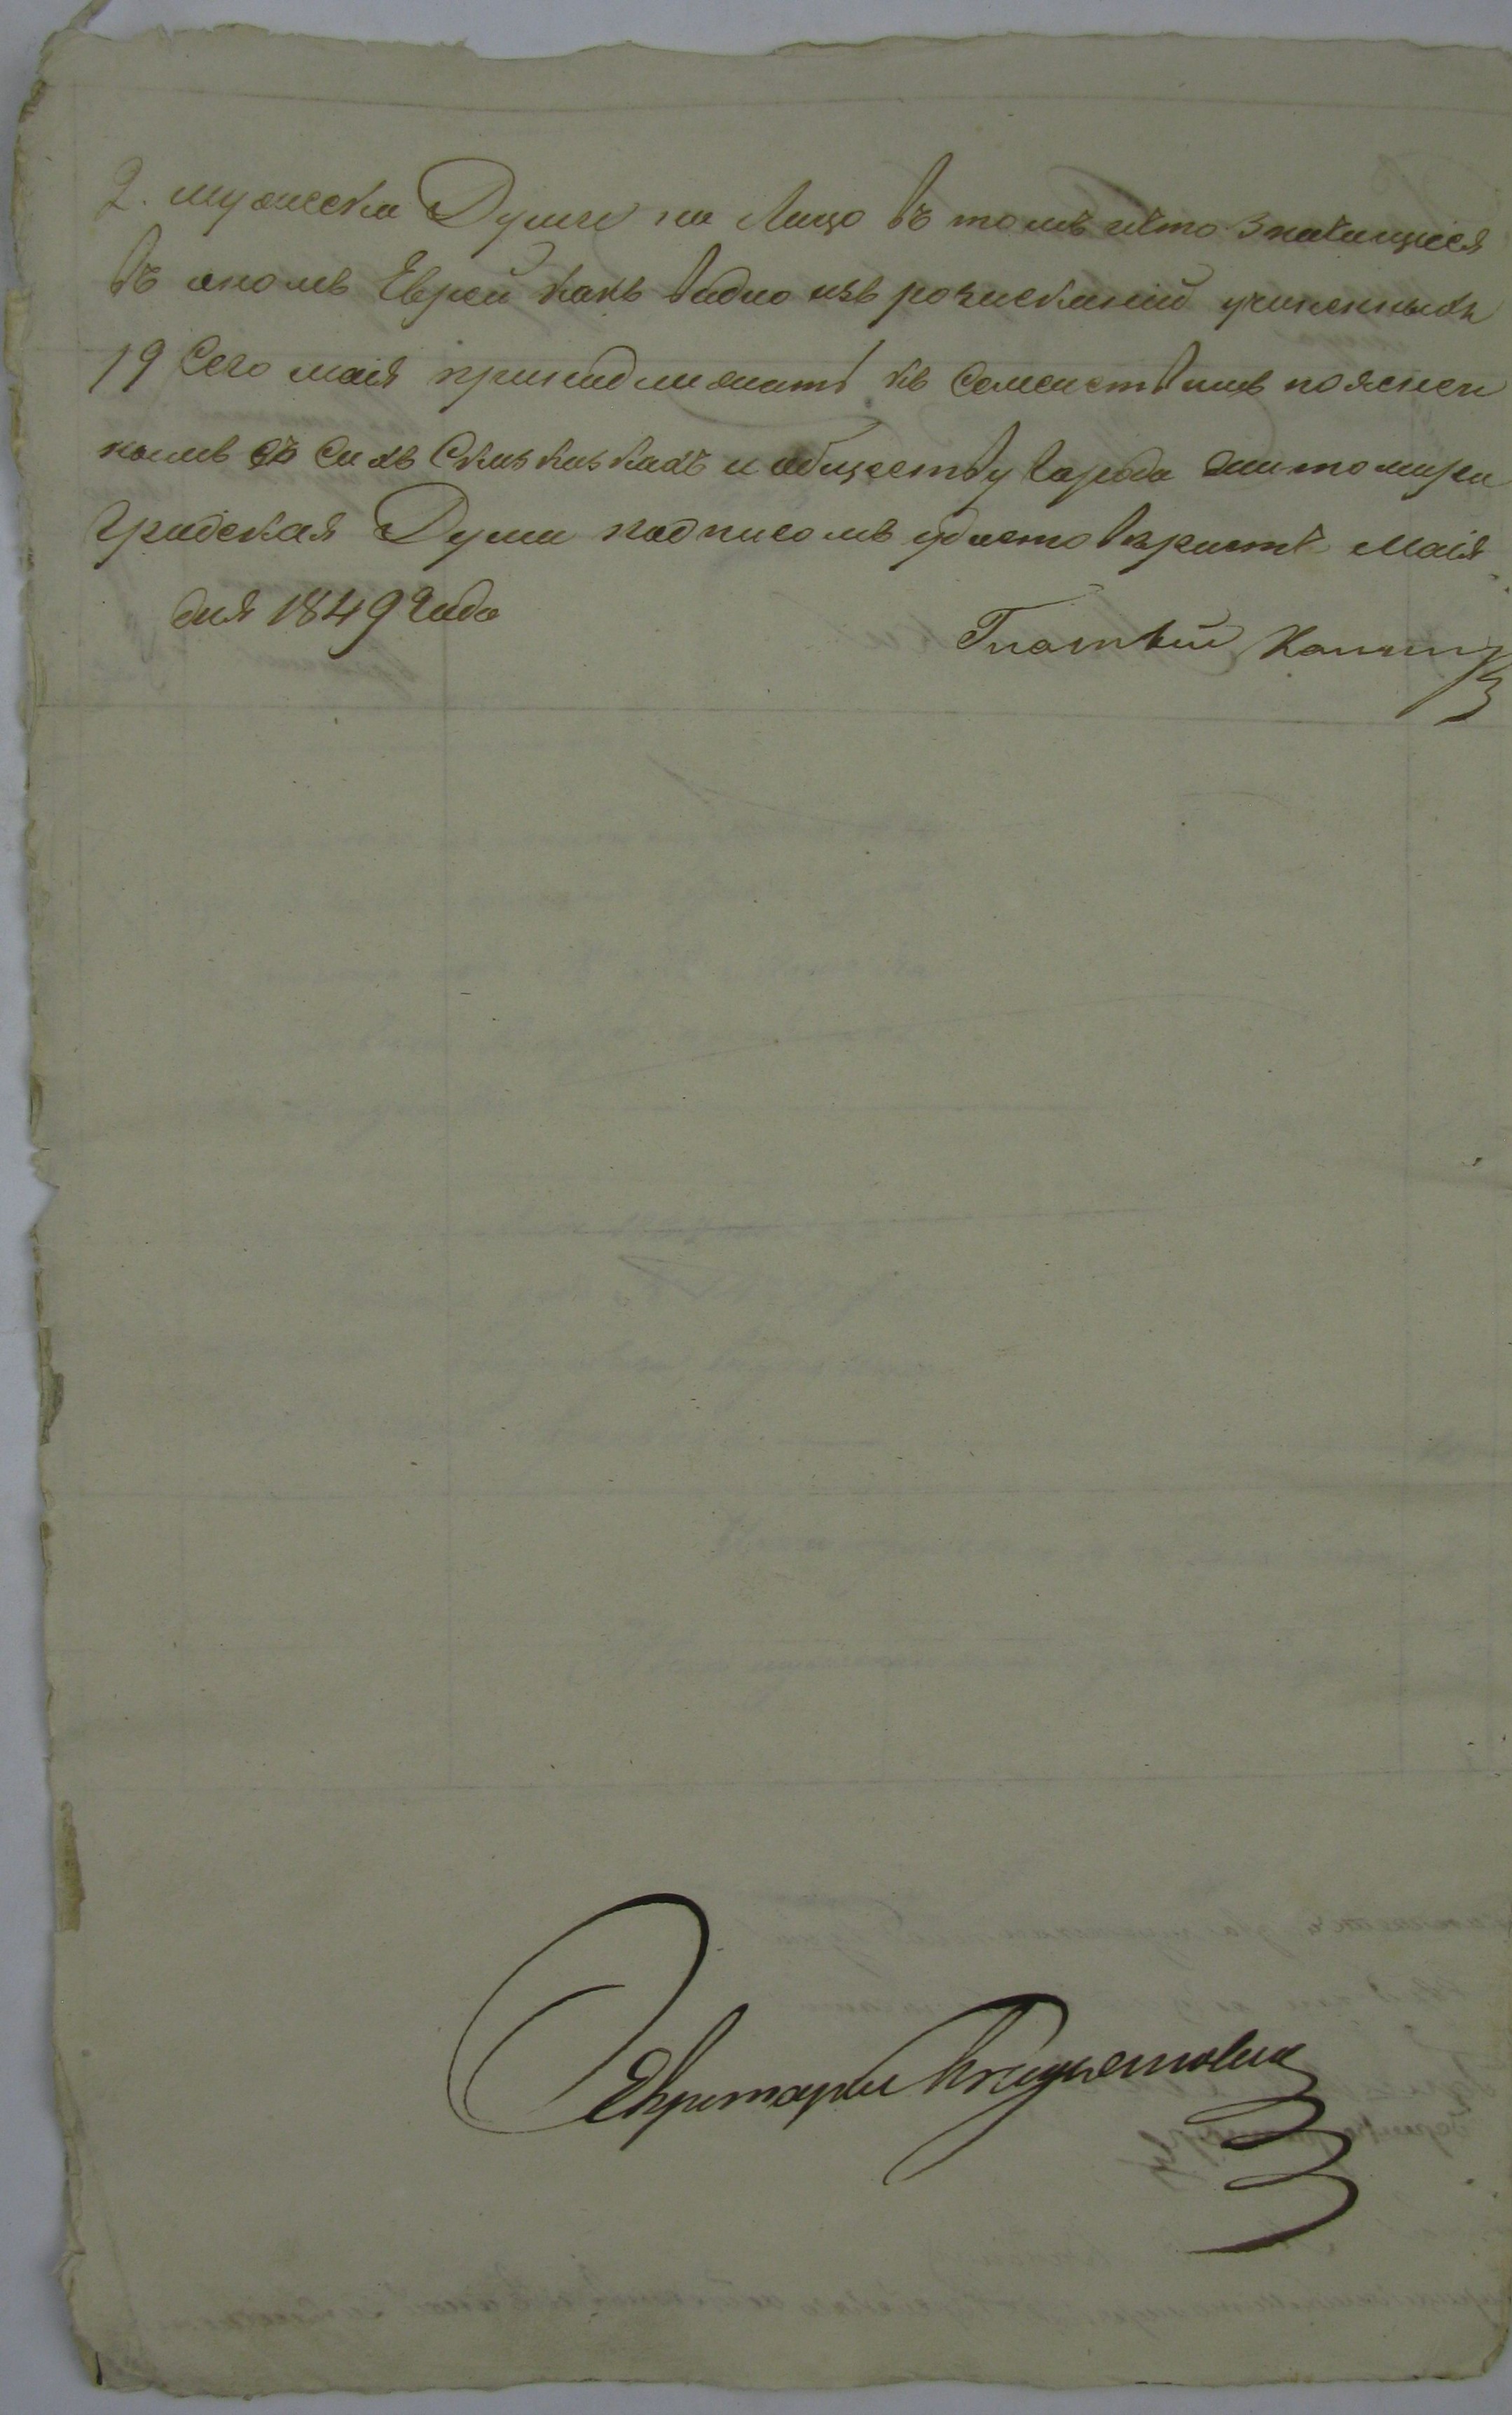 2. мужеска Души на Лицо въ томъ что значащиеся
въ ономъ Евреи какъ видно изъ розисканий учиненныхъ
19 Сего маия принадлижатъ къ Семействамъ поясней
нымъ въ сихъ Сказказкахъ и обществу города Житомира
Градская Дума подписомъ удостоверяетъ Маия
дня 1849 Года
Гласный
Секретарь